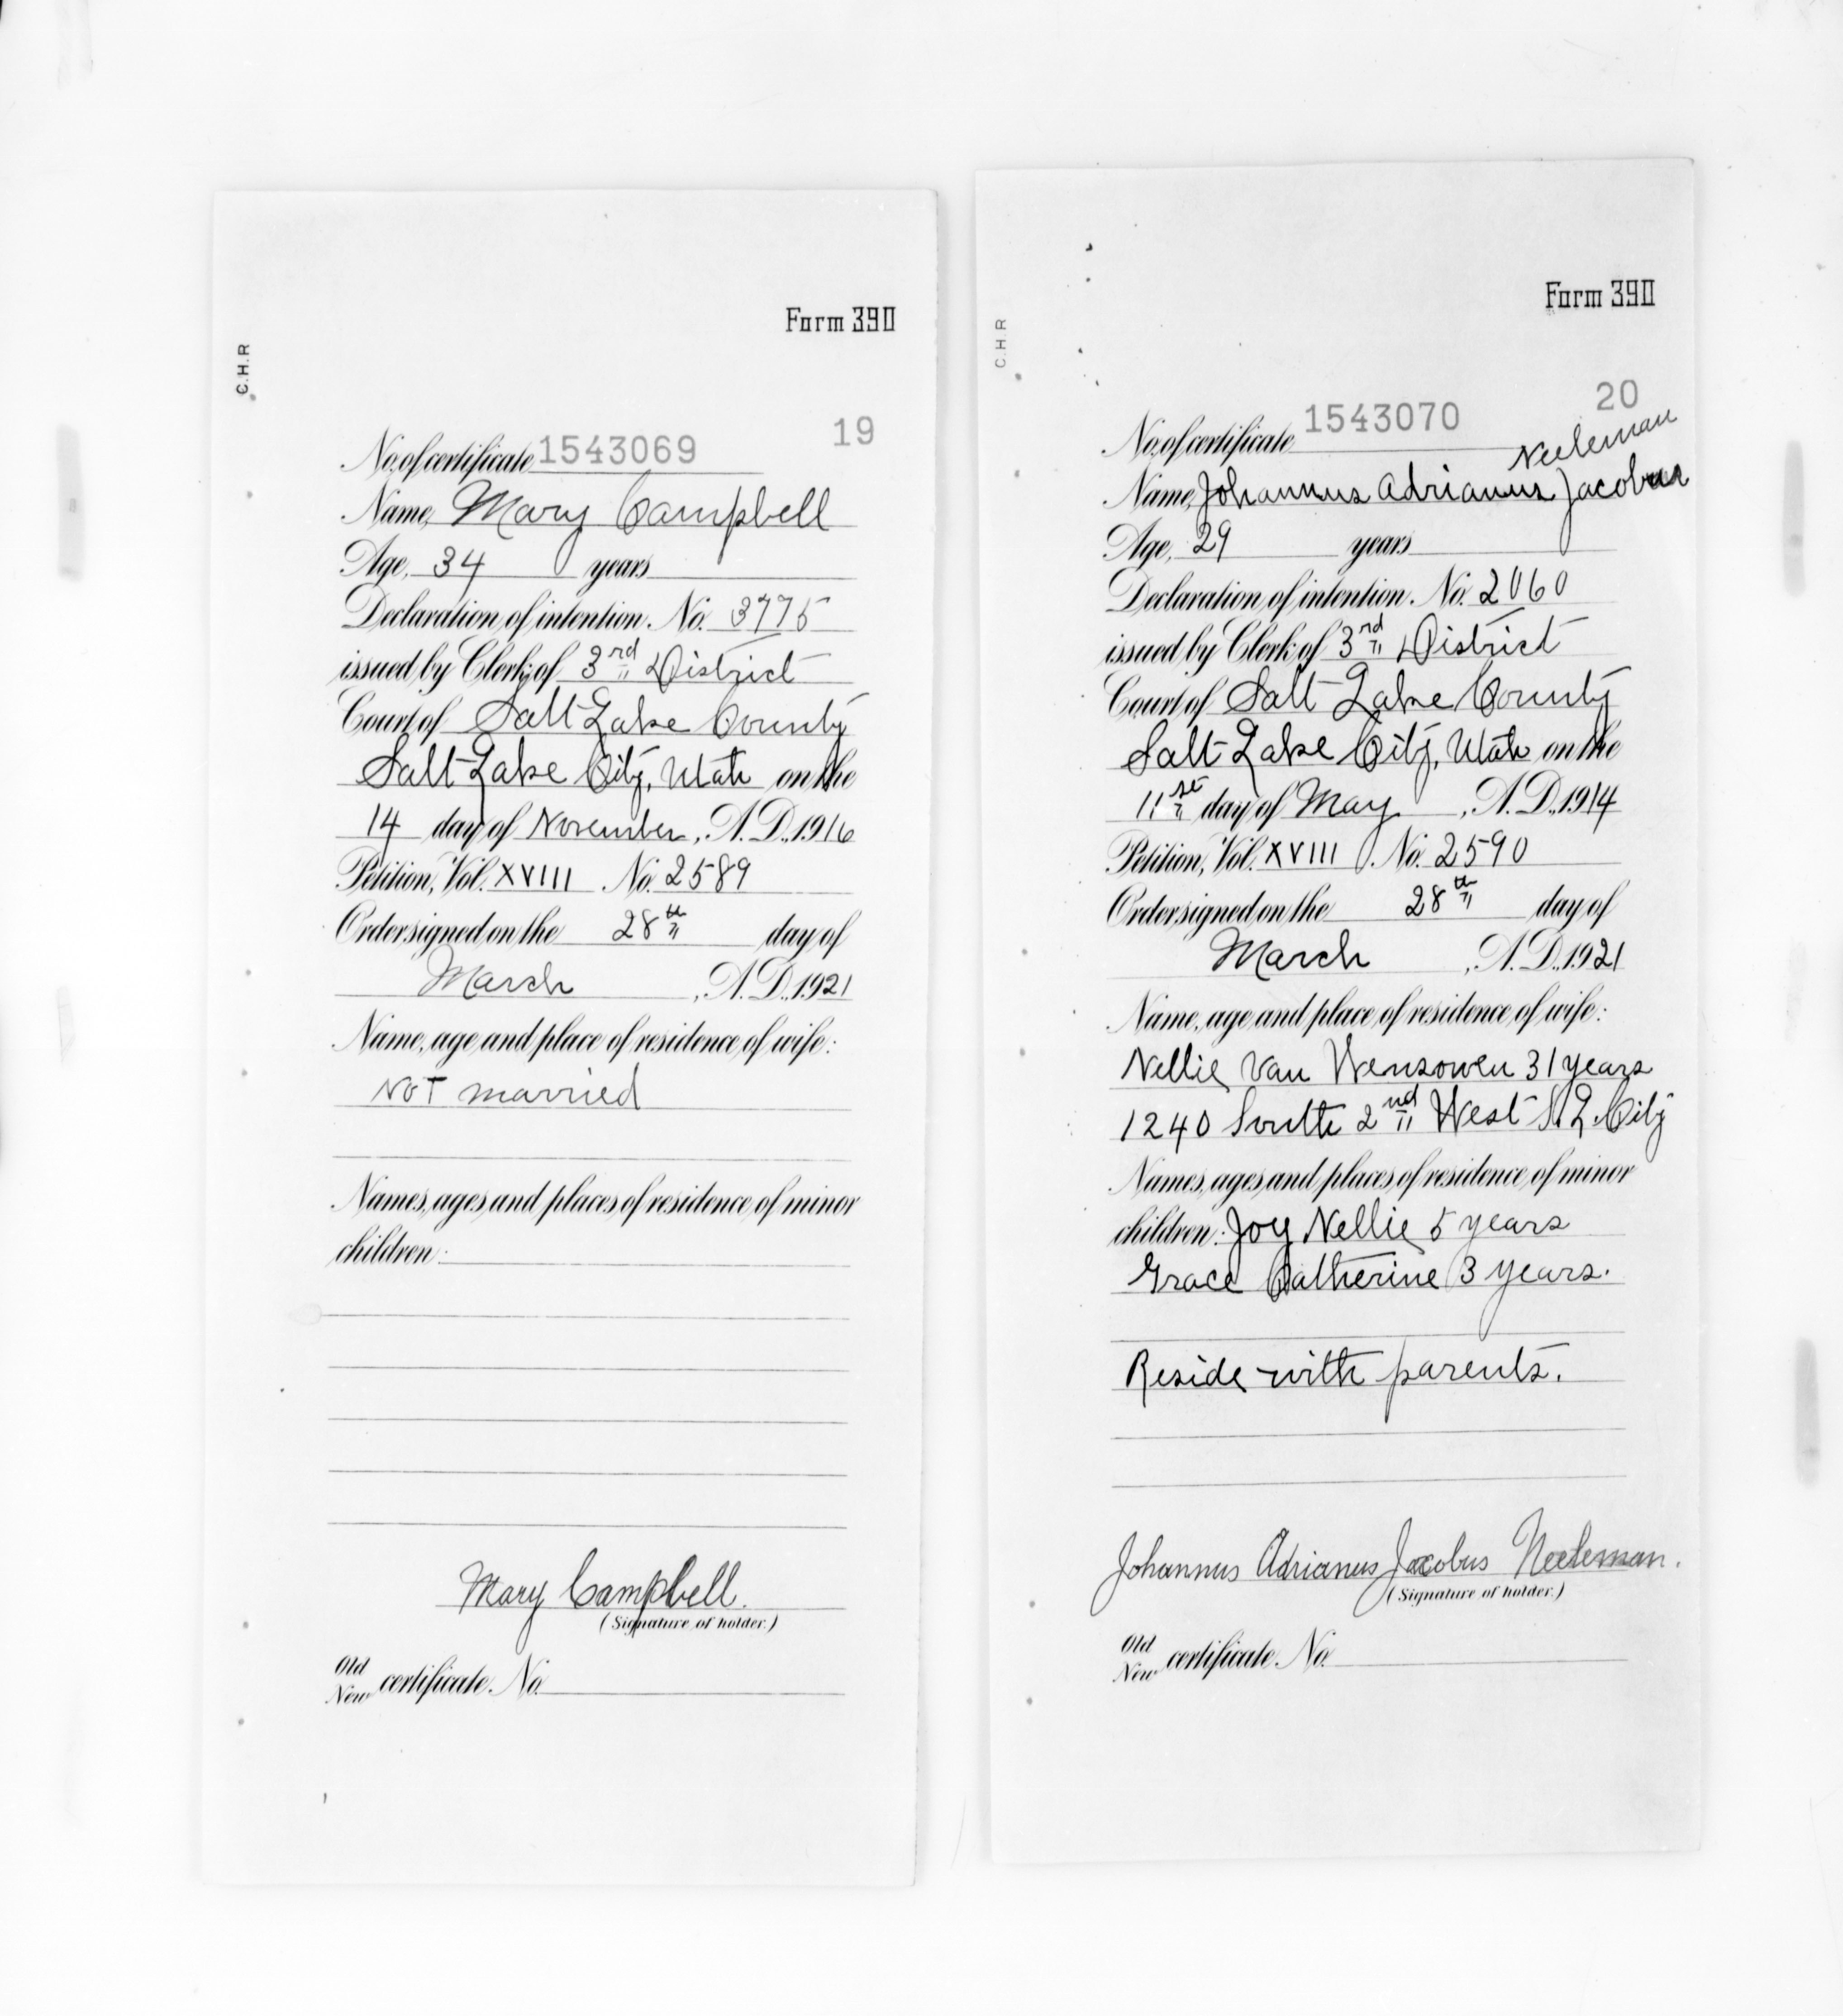 Form 390
C.H.R
19
No. of certificate 1543069
Name, Mary Campbell
Age, 34 years
Declaration of intention. No. 3775
issued by Clerk of 3rd District
Court of Salt Lake County
Salt Lake City, Utah on the
14 day of November, A.D., 1916
Petition, Vol. XVIII No. 2589
Order signed on the 28th day of
March, A.D., 1921
Name, age and place of residence of wife:
Not married
Names, ages and places of residence of minor
children:
Mary Campbell.
(Signature of holder.)
Old
New certificate. No.
Form 390
C.H.R
20
No. of certificate 1543070
Neeleman
Name, Johannus Adrianus Jacobus
Age, 29 years
Declaration of intention. No. 2060
issued by Clerk of 3rd District
Court of Salt Lake County
Salt Lake City, Utah on the
11st day of May, A.D., 1914
Petition, Vol. XVIII. No. 2590
Order signed on the 28th day of
March, A.D., 1921
Name, age and place of residence of wife:
Nellie Van 31 years
1240 South 2nd West S.L. City
Names, ages and places of residence of minor
children: Joy Nellie 5 years
Grace Catherine 3 years.
Reside with parents.
Johannus Adrianus Jacobus Neeleman.
(Signature of holder.)
Old
New certificate. No.